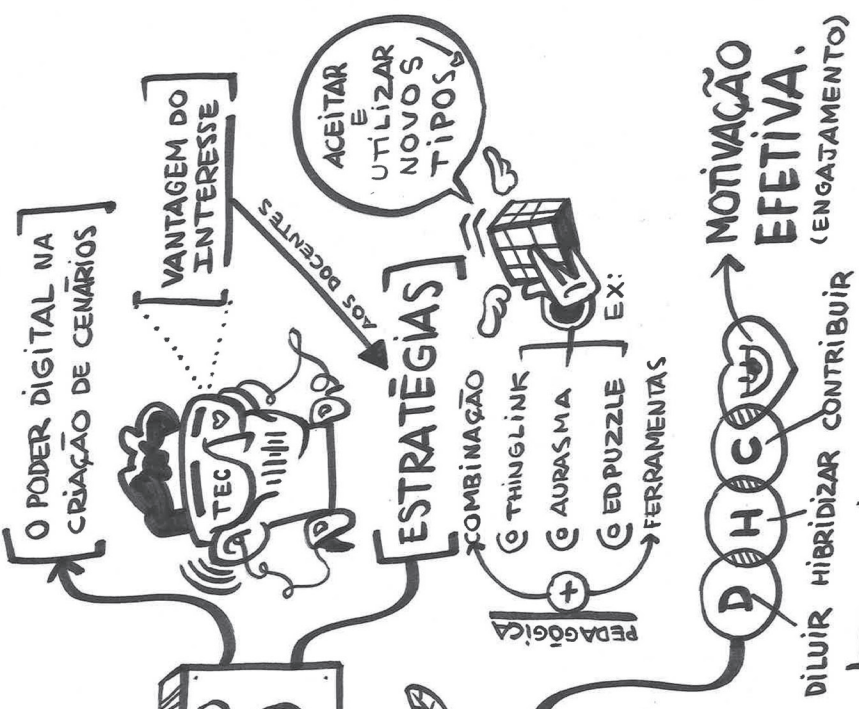 O PODER DIGITAL NA
CRIAÇÃO DE CENÁRIOS
VANTAGEM DO
INTERESSE
TEC
AOS DOCENTES
ESTRATÉGIAS
ACEITAR
E
UTILIZAR
NOVOS
TIPOS!
COMBINAÇÃO
THINGLINK
AURASMA
EDPUZZLE
FERRAMENTAS
+
PEDAGÓGICA
EX:
D H C
DILUIR HIBRIDIZAR CONTRIBUIR
MOTIVAÇÃO
EFETIVA.
(ENGAJAMENTO)